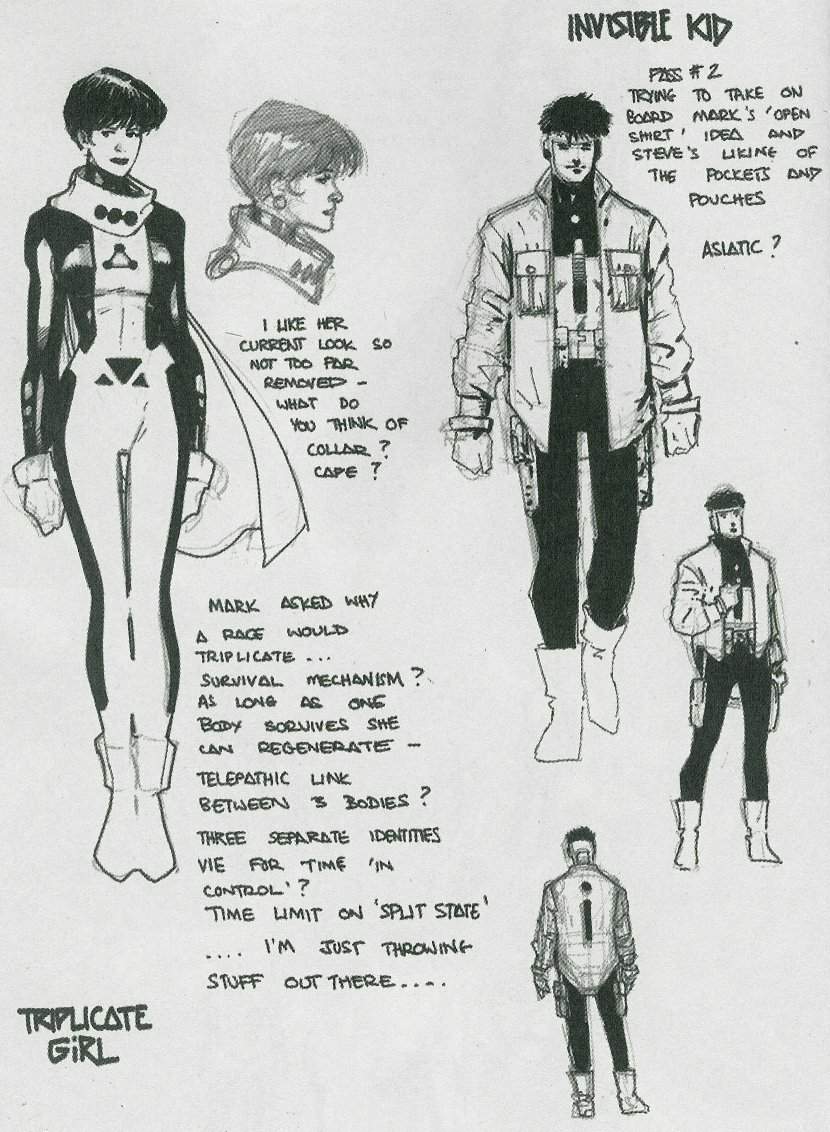 INVISIBLE KID
PASS #2
TRYING TO TAKE ON
BOARD MARK'S 'OPEN
SHIRT' IDEA AND
STEVE'S LIKING OF
THE POCKETS AND
POUCHES
ASIATIC?
I LIKE HER
CURRENT LOOK SO
NOT TOO FAR
REMOVED -
WHAT DO
YOU THINK OF
COLLAR?
CAPE?
MARK ASKED WHY
A RACE WOULD
TRIPLICATE...
SURVIVAL MECHANISM?
AS LONG AS ONE
BODY SURVIVES SHE
CAN REGENERATE -
TELEPATHIC LINK
BETWEEN 3 BODIES?
THREE SEPARATE IDENTITIES
VIE FOR TIME 'IN
CONTROL'?
TIME LIMIT ON 'SPLIT STATE'
.... I'M JUST THROWING
STUFF OUT THERE.....
TRIPLICATE
GIRL